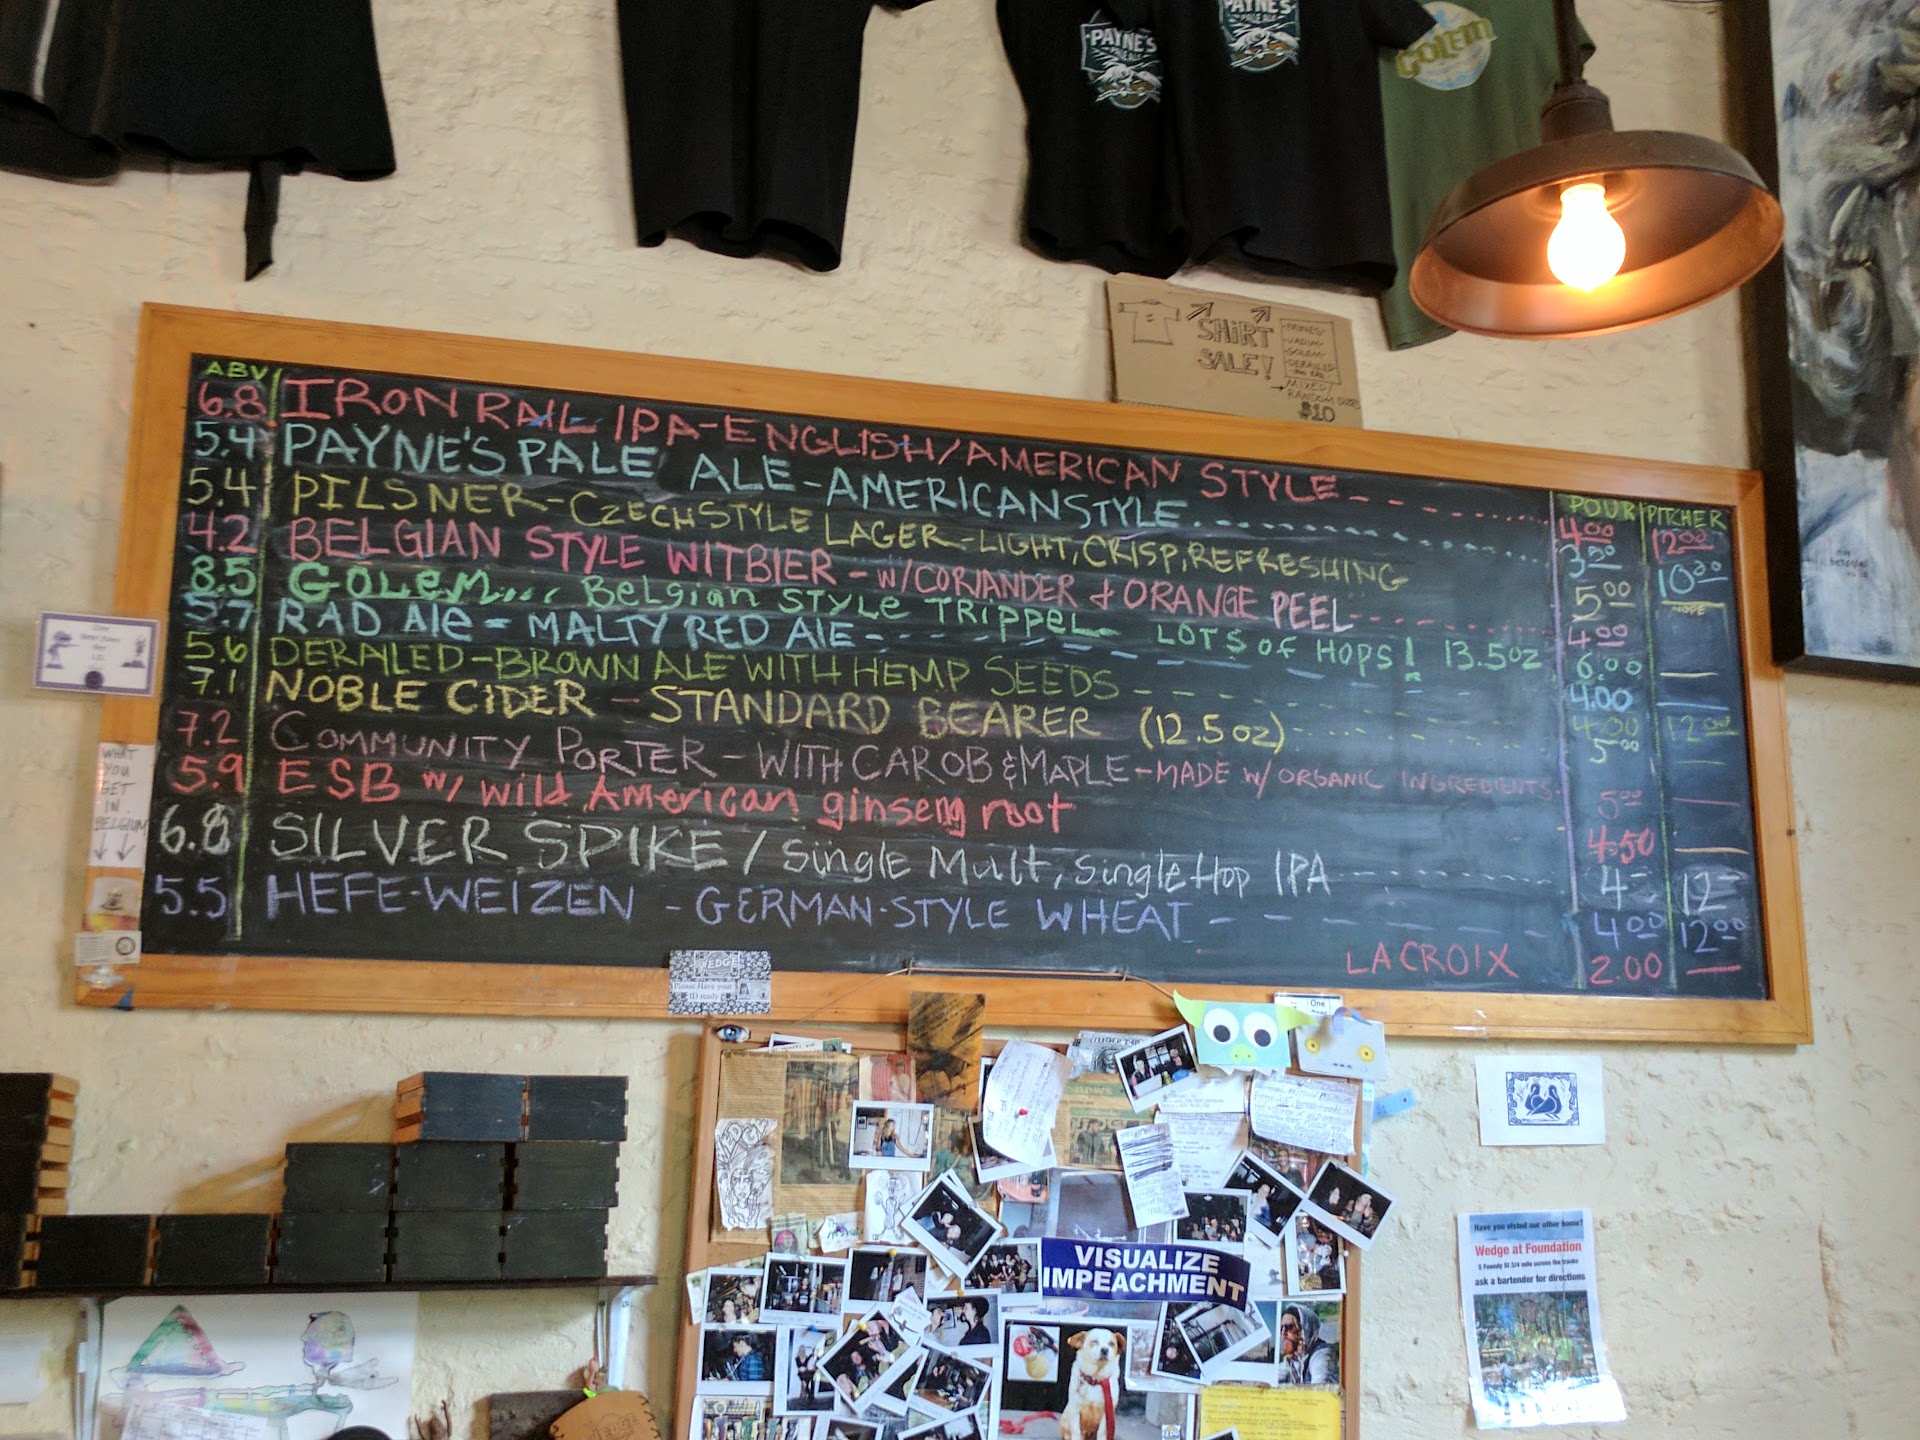 PAYNE'S
PALE ALE
PAYNE'S
PALE ALE
GOLEM
SHIRT
SALE!
PAYNES
VADIM
GOLEM
DERAILED
MIXED/
RANDOM SIZES
$10
ABV POUR PITCHER
6.8 IRON RAIL IPA-ENGLISH/AMERICAN STYLE 4.00 12.00
5.4 PAYNE'S PALE ALE-AMERICAN STYLE 3.50 10.50
5.4 PILSNER-CZECH STYLE LAGER-LIGHT, CRISP, REFRESHING 5.00 NOPE
4.2 BELGIAN STYLE WITBIER - W/CORIANDER & ORANGE PEEL 4.00
8.5 GOLEM... BELGIAN STYLE TRIPPEL LOTS OF HOPS! 13.5oz 6.00
5.7 RAD ALE - MALTY RED ALE 4.00
5.6 DERAILED-BROWN ALE WITH HEMP SEEDS 4.00 12.00
7.1 NOBLE CIDER - STANDARD BEARER (12.5oz) 5.00
7.2 COMMUNITY PORTER - WITH CAROB & MAPLE-MADE W/ORGANIC INGREDIENTS 5.00
5.9 ESB w/ wild American ginseng root 4.50
6.8 SILVER SPIKE / Single Malt, Single Hop IPA 4- 12-
5.5 HEFE-WEIZEN - GERMAN-STYLE WHEAT 4.00 12.00
LACROIX 2.00
WHAT
YOU
GET
IN
BELGIUM
WEDGE
Please Have your
ID ready
One
VISUALIZE
IMPEACHMENT
Have you visted our other home?
Wedge at Foundation
5 Foundy St 3/4 mile across the tracks
ask a bartender for directions